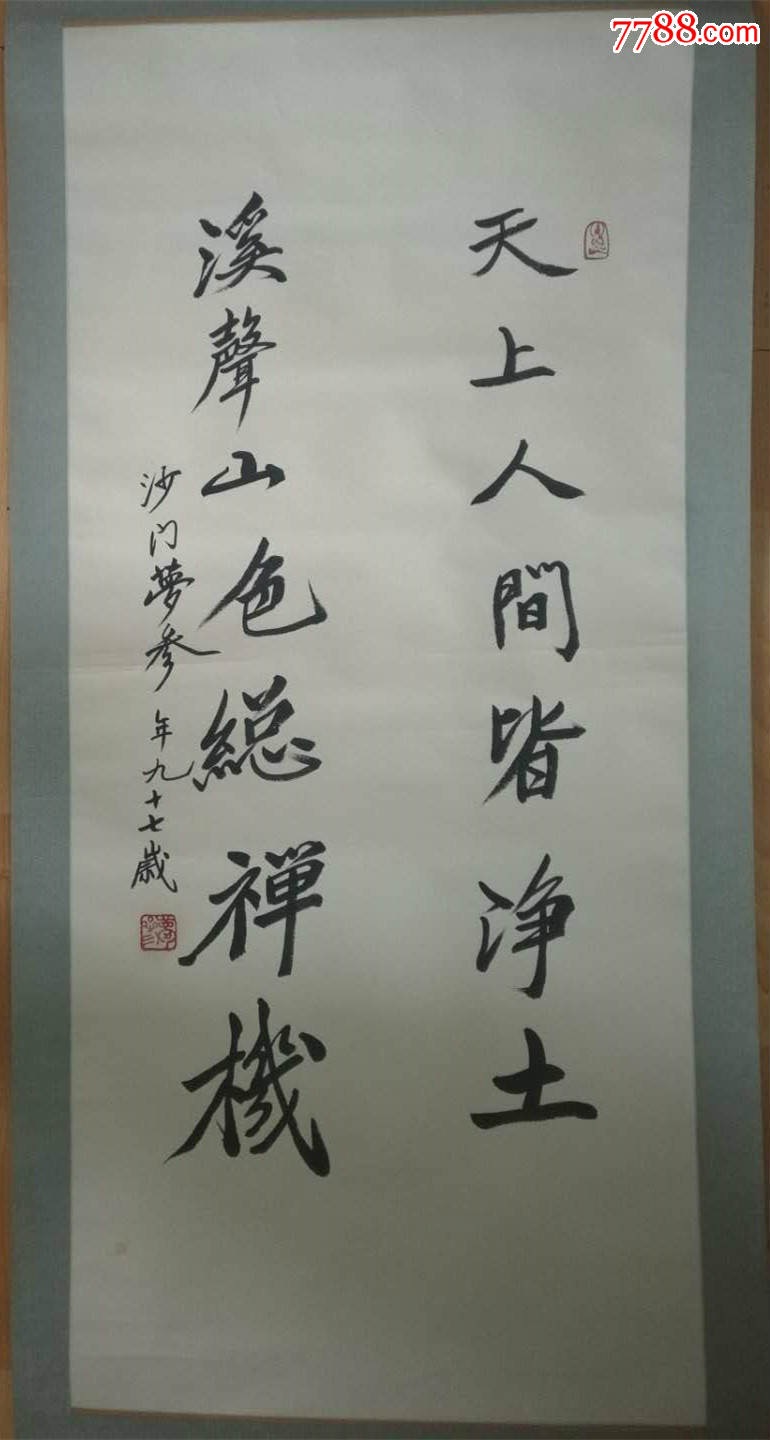 7788.com
天上人間皆浄土
溪聲山色総禅機
沙门夢参年九十七歲